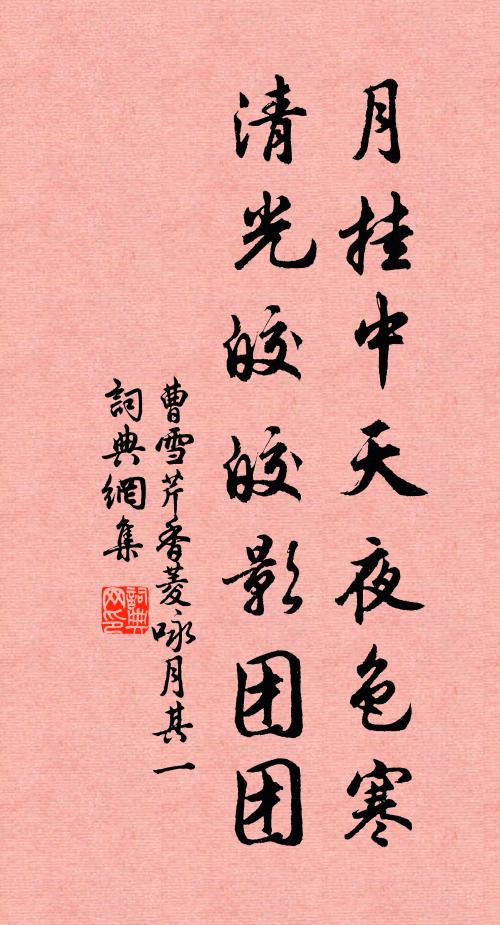 月挂中天夜色寒
清光皎皎影团团
曹雪芹香菱咏月其一
詞典網集
詞典网印